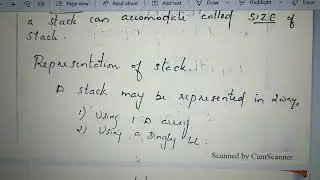 Draw
Read aloud
Add text
a stack can accomodate called SIZE of
stack.
Representation of stack
A stack may be represented in 2 way,
1) Using 1 D array
2) Using a singly LL.
Scanned by CamScanner